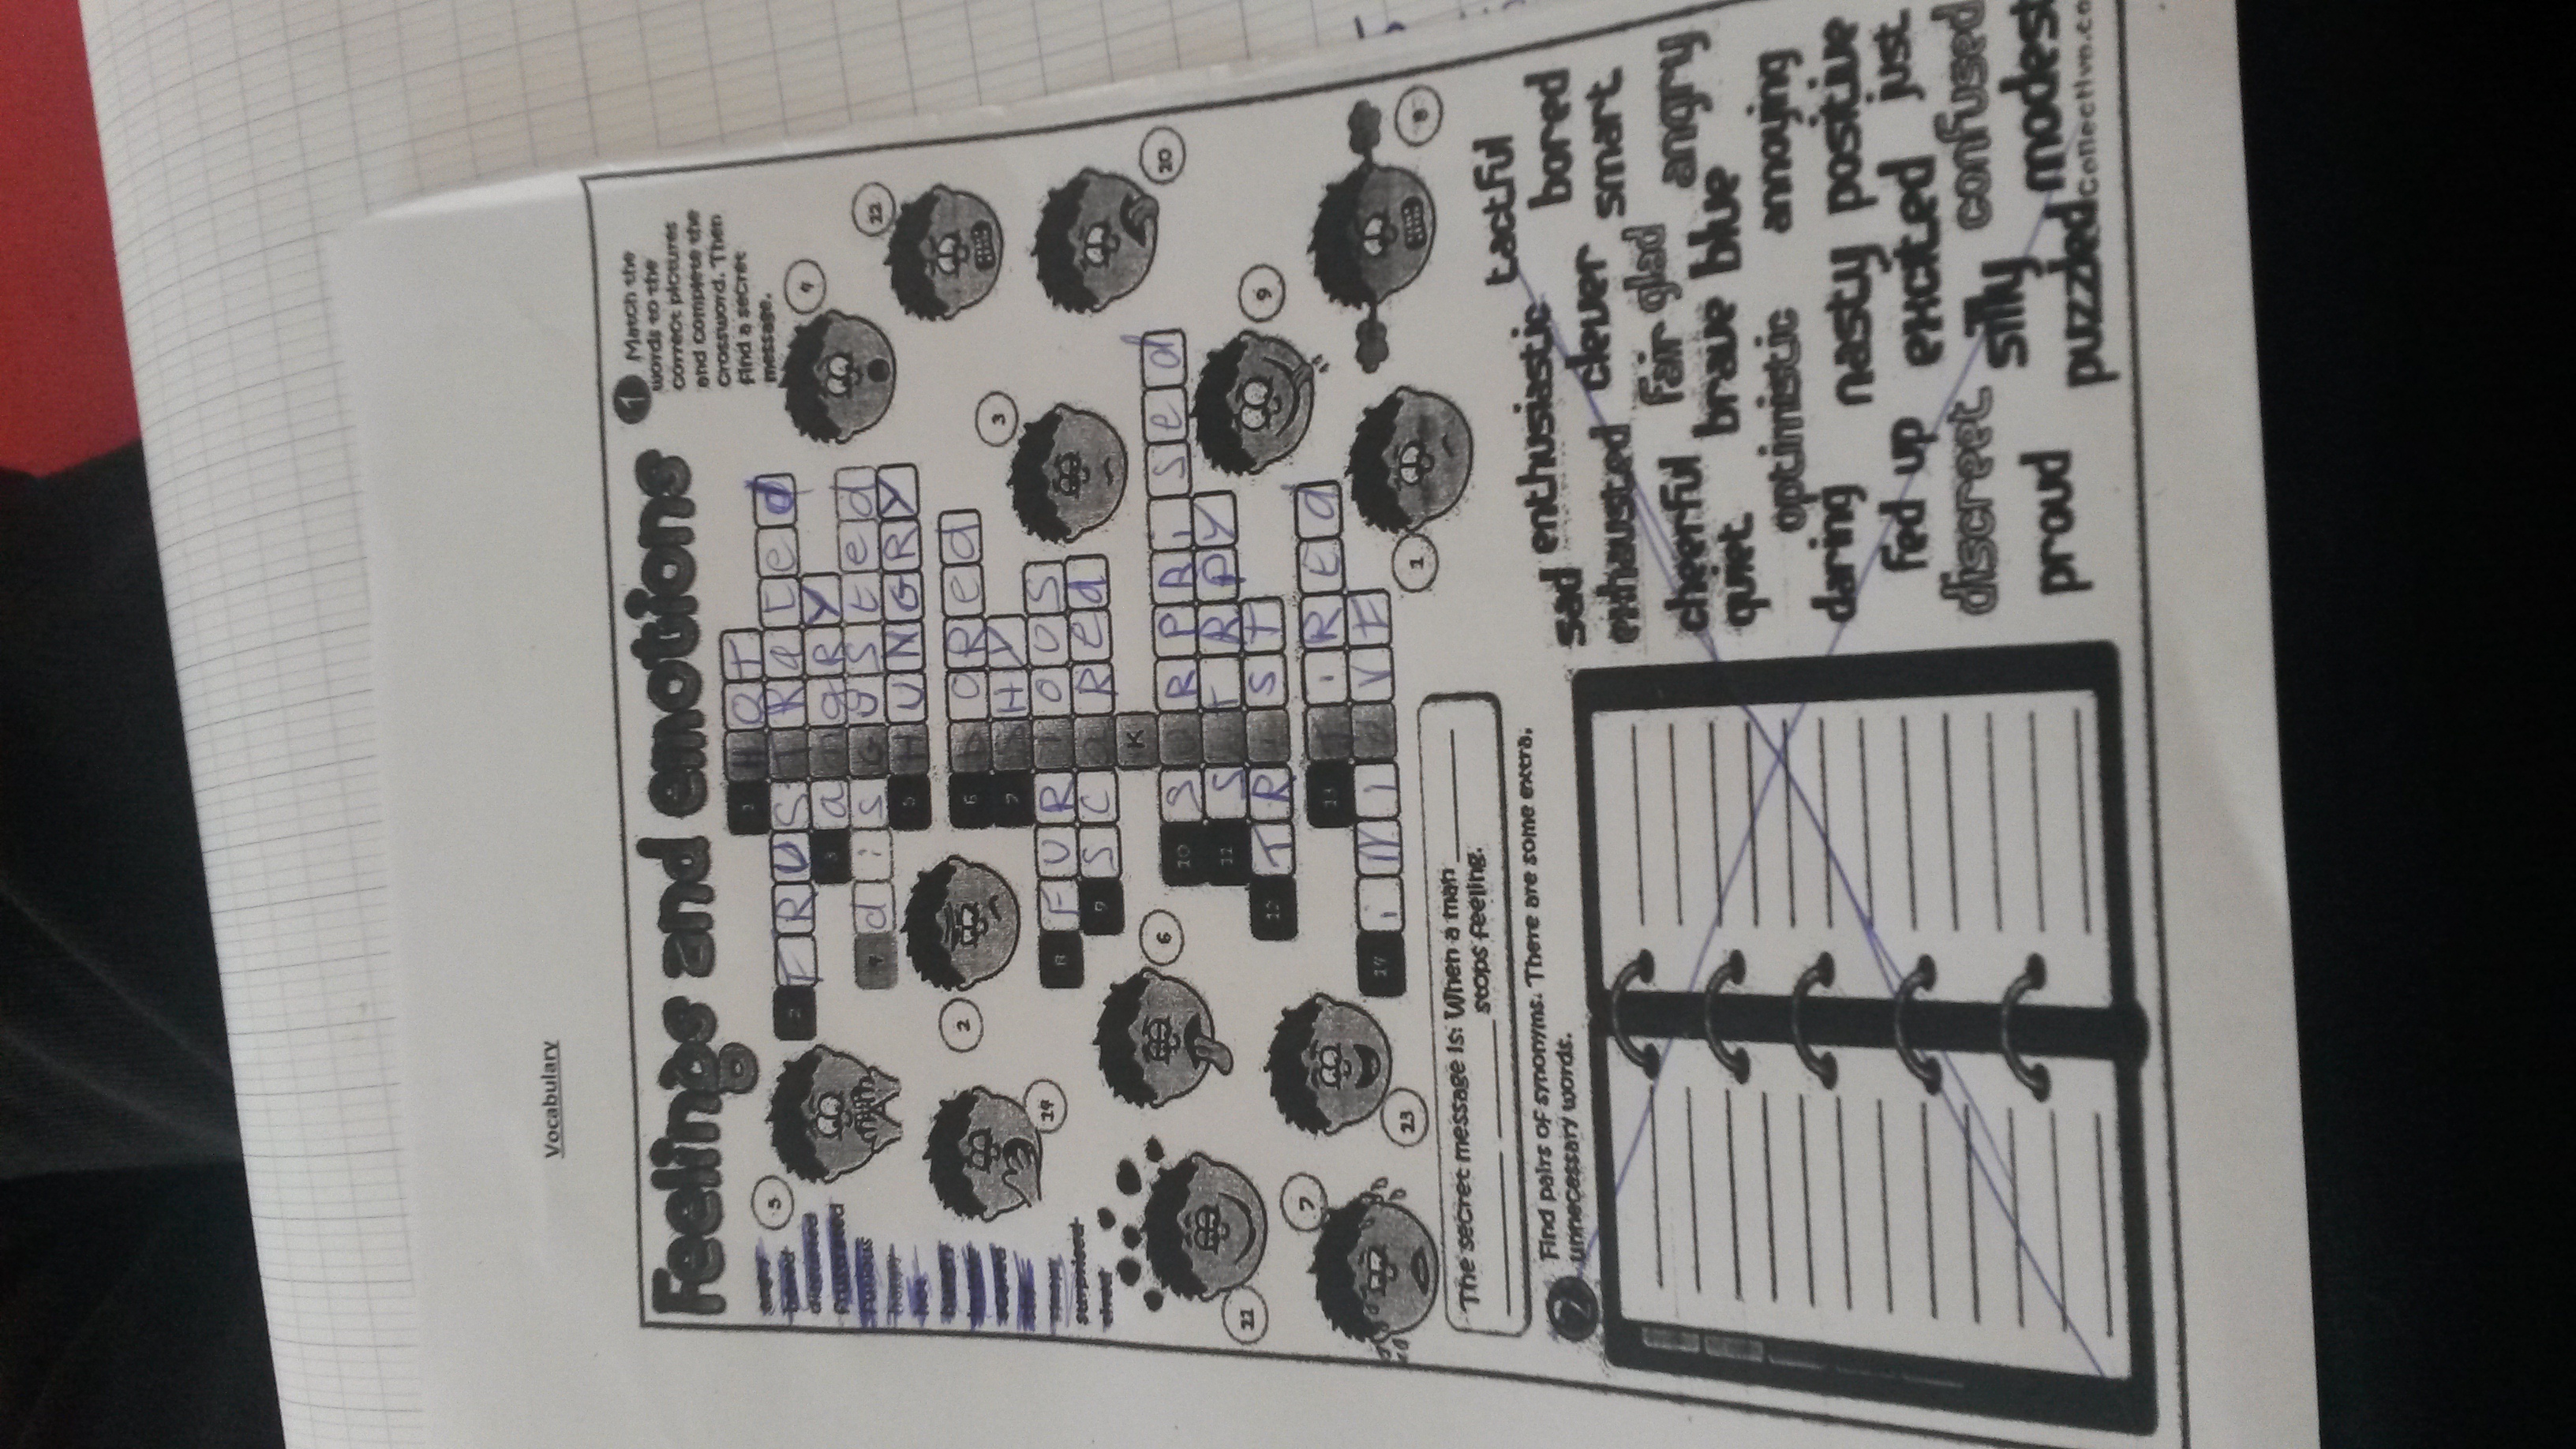 Vocabulary
Feelings and emotions
1 Match the
words to the
correct pictures
and complete the
crossword. Then
find a secret
message.
angry
bored
disgusted
frustrated
furious
happy
hungry
scared
surprised
tired
1 HOT
2 FRUSTRated
3 angRY
4 disGUSted
5 HUNGRY
6 bORed
7 SHY
8 FURiOUS
9 SCaRed
K
10 SURPRised
12 TRiST
13 TiREd
14
5
4
2
22
3
6
9
7
1
8
The secret message is: When a man
stops feeling.
2 Find pairs of synonyms. There are some extra,
unnecessary words.
tactful
sad enthusiastic
bored
exhausted clever smart
cheerful fair glad angry
quiet brave blue
optimistic annoying
daring nasty positive
fed up excited just
discreet silly confused
proud puzzled modest
Collective.co